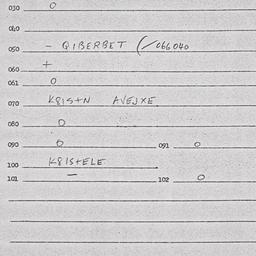 030 0
040
050 - QIBERBET (/066040
060 +
061 0
070 K8IS+N AVEJXE
080 0
090 0 091 0
100 K8IS+ELE
101 - 102 0